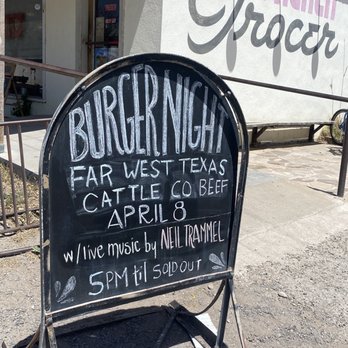 Grocer
BURGER NIGHT
FAR WEST TEXAS
CATTLE CO. BEEF
APRIL 8
w/live music by NEIL TRAMMEL
5PM til SOLD OUT